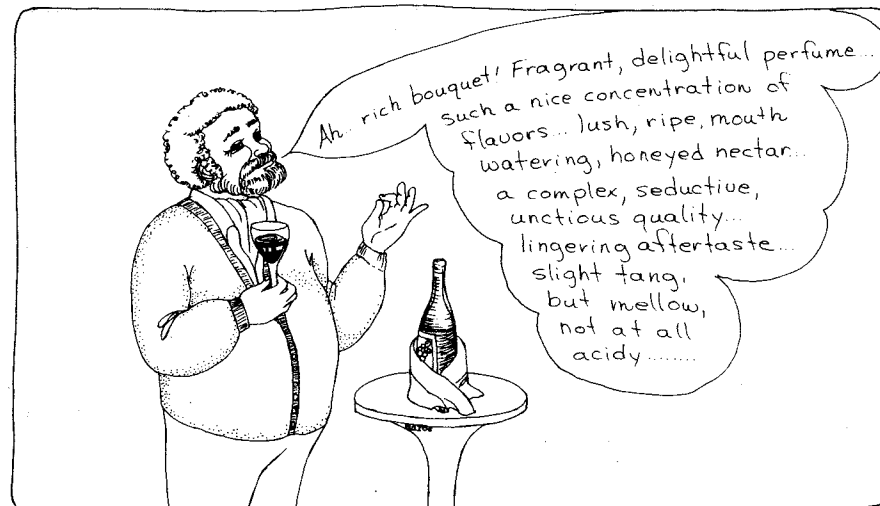 Ah... rich bouquet! Fragrant, delightful perfume...
such a nice concentration of
flavors... lush, ripe, mouth
watering, honeyed nectar...
a complex, seductive,
unctious quality...
lingering aftertaste...
slight tang,
but mellow,
not at all
acidy........